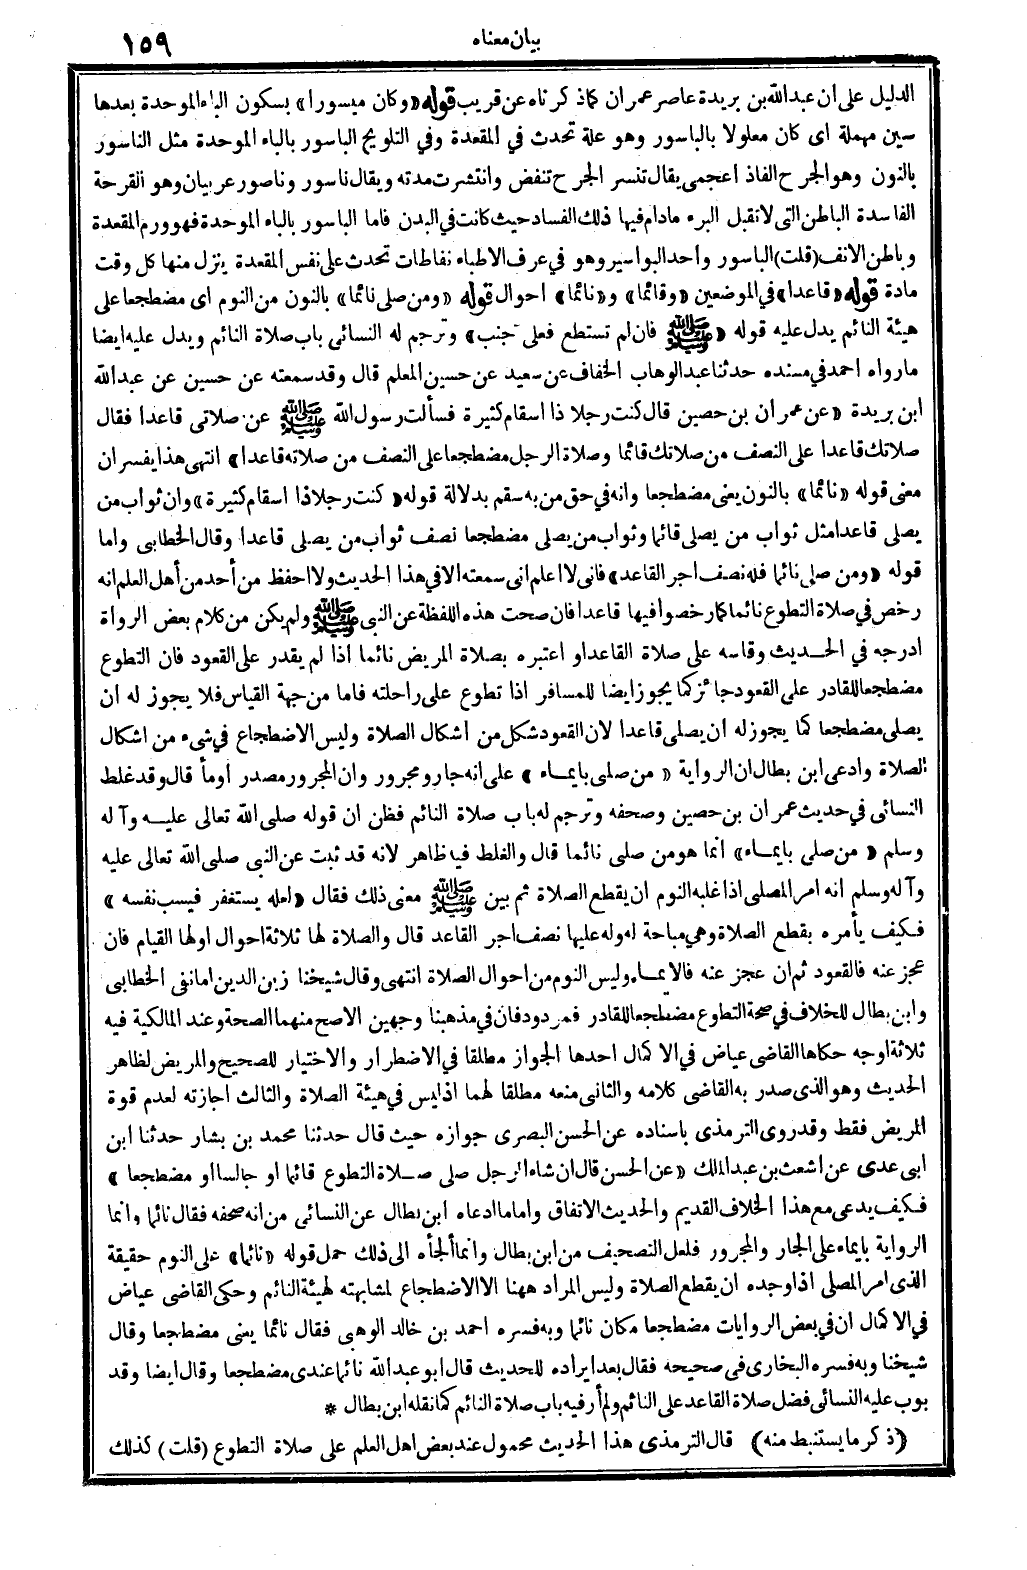 بيان معناه ١٥٩
الدليل على ان عبدالله بن بريدة عاصر عمران كماذ كرناه عن قريب قوله «وكان ميسورا» بسكون الباء الموحدة بعدها
سين مهملة اى كان معلولا بالباسور وهو علة تحدث في المقعدة وفي التلويح الباسور بالباء الموحدة مثل الناسور
بالنون وهو الجرح الفاذ اعجمى يقال تنسر الجرح تنفض وانتشرت مدته ويقال ناسور وناصور عربيان وهو القرحة
الفاسدة الباطن التى لا تقبل البرء مادام فيها ذلك الفساد حيث كانت في البدن فاما الباسور بالباء الموحدة فهو ورم المقعدة
وباطن الانف (قلت) الباسور واحد البواسير وهو في عرف الاطباء نفاطات تحدث على نفس المقعدة ينزل منها كل وقت
مادة قوله «قاعدا» في الموضعين «وقائما» و«نائما» احوال قوله «ومن صلى نائما» بالنون من النوم اى مضطجعا على
هيئة النائم يدل عليه قوله «ﷺ فان لم تستطع فعلى جنب» وترجم له النسائى باب صلاة النائم ويدل عليه ايضا
مارواه احمد في مسنده حدثنا عبدالوهاب الخفاف عن سعيد عن حسين المعلم قال وقد سمعته عن حسين عن عبدالله
ابن بريدة «عن عمران بن حصين قال كنت رجلا ذا اسقام كثيرة فسألت رسول الله ﷺ عن صلاتى قاعدا فقال
صلاتك قاعدا على النصف من صلاتك قائما وصلاة الرجل مضطجعا على النصف من صلاته قاعدا» انتهى هذا يفسر ان
معنى قوله «نائما» بالنون يعنى مضطجعا وانه في حق من به سقم بدلالة قوله «كنت رجلا ذا اسقام كثيرة» وان ثواب من
يصلى قاعدا مثل ثواب من يصلى قائما وثواب من يصلى مضطجعا نصف ثواب من يصلى قاعدا وقال الخطابى واما
قوله «ومن صلى نائما فله نصف اجر القاعد» فانى لا اعلم انى سمعته الا في هذا الحديث ولا احفظ من أحد من أهل العلم انه
رخص في صلاة التطوع نائما كما رخصوا فيها قاعدا فان صحت هذه اللفظة عن النبى ﷺ ولم يكن من كلام بعض الرواة
ادرجه في الحديث وقاسه على صلاة القاعد او اعتبره بصلاة المريض نائما اذا لم يقدر على القعود فان التطوع
مضطجعا للقادر على القعود جائز كما يجوز ايضا للمسافر اذا تطوع على راحلته فاما من جهة القياس فلا يجوز له ان
يصلى مضطجعا كما يجوز له ان يصلى قاعدا لان القعود شكل من أشكال الصلاة وليس الاضطجاع في شىء من اشكال
الصلاة وادعى ابن بطال ان الرواية «من صلى بايماء» على انه جار ومجرور وان المجرور مصدر اومأ قال وقد غلط
النسائى في حديث عمران بن حصين وصحفه وترجم له باب صلاة النائم فظن ان قوله صلى الله تعالى عليه وآله
وسلم «من صلى بايماء» أنما هو من صلى نائما قال والغلط فيه ظاهر لانه قد ثبت عن النبى صلى الله تعالى عليه
وآله وسلم انه امر المصلى اذا غلبه النوم ان يقطع الصلاة ثم بين ﷺ معنى ذلك فقال «لعله يستغفر فيسب نفسه»
فكيف يأمره بقطع الصلاة وهى مباحة له وله عليها نصف اجر القاعد قال والصلاة لها ثلاثة احوال اولها القيام فان
عجز عنه فالقعود ثم ان عجز عنه فالايماء وليس النوم من احوال الصلاة انتهى وقال شيخنا زين الدين اما نفى الخطابى
وابن بطال للخلاف في صحة التطوع مضطجعا للقادر فمردود فان في مذهبنا وجهين الاصح منهما الصحة وعند المالكية فيه
ثلاثة اوجه حكاها القاضى عياض في الا كمال احدها الجواز مطلقا في الاضطرار والاختيار للصحيح والمريض لظاهر
الحديث وهو الذى صدر به القاضى كلامه والثانى منعه مطلقا لهما اذ ليس في هيئة الصلاة والثالث اجازته لعدم قوة
المريض فقط وقد روى الترمذى باسناده عن الحسن البصرى جوازه حيث قال حدثنا محمد بن بشار حدثنا ابن
ابى عدى عن اشعث بن عبدالملك «عن الحسن قال ان شاء الرجل صلى صلاة التطوع قائما او جالسا او مضطجعا»
فكيف يدعى مع هذا الخلاف القديم والحديث الاتفاق واما ما ادعاه ابن بطال عن النسائى من انه صحفه فقال نائما وانما
الرواية بايماء على الجار والمجرور فلعل التصحيف من ابن بطال وانما ألجأه الى ذلك حمل قوله «نائما» على النوم حقيقة
الذى امر المصلى اذا وجده ان يقطع الصلاة وليس المراد ههنا الا الاضطجاع لمشابهته لهيئة النائم وحكى القاضى عياض
في الا كمال ان في بعض الروايات مضطجعا مكان نائما وبه فسره احمد بن خالد الوهبى فقال نائما يعنى مضطجعا وقال
شيخنا وبه فسره البخارى في صحيحه فقال بعد ايراده للحديث قال ابو عبدالله نائما عندى مضطجعا وقال ايضا وقد
بوب عليه النسائى فضل صلاة القاعد على النائم ولم أر فيه باب صلاة النائم كما نقله ابن بطال *
(ذكر ما يستنبط منه) قال الترمذى هذا الحديث محمول عند بعض اهل العلم على صلاة التطوع (قلت) كذلك